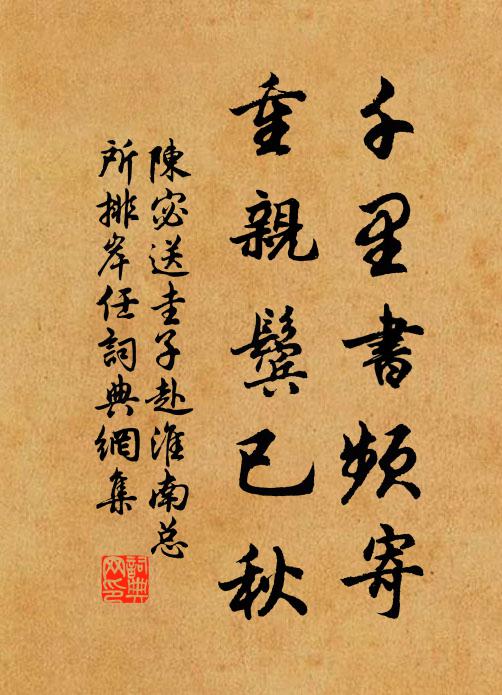 千里書頻寄
重親鬓已秋
陳宓送圭子赴淮南总
所排岸任詞典網集
詞典
网印